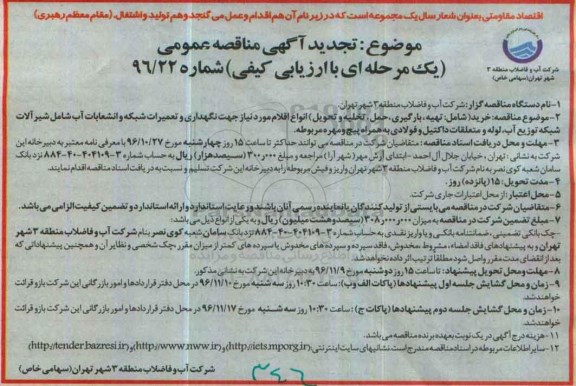 اقتصاد مقاومتی بعنوان شعار سال یک مجموعه است که در زیر نام آن هم اقدام و عمل می گنجد و هم تولید و اشتغال. (مقام معظم رهبری)
موضوع: تجدید آگهی مناقصه عمومی
(یک مرحله ای با ارزیابی کیفی) شماره ۹۶/۲۲
شرکت آب و فاضلاب منطقه ۳
شهر تهران (سهامی خاص)
۱- نام دستگاه مناقصه گزار: شرکت آب و فاضلاب منطقه ۳ شهر تهران
۲- موضوع مناقصه: خرید (شامل: تهیه، بارگیری، حمل، تخلیه و تحویل) انواع اقلام مورد نیاز جهت نگهداری و تعمیرات شبکه و انشعابات آب شامل شیرآلات
شبکه توزیع آب، لوله و متعلقات داکتیل و فولادی به همراه پیچ و مهره مربوطه.
۳- مهلت و محل دریافت اسناد مناقصه: متقاضیان شرکت در مناقصه می توانند حداکثر تا ساعت ۱۵ روز چهارشنبه مورخ ۹۶/۱۰/۲۷ با معرفی نامه معتبر به دبیرخانه این
شرکت به نشانی: تهران، خیابان جلال آل احمد- ابتدای آرش مهر (شهرآرا) مراجعه و مبلغ ۳۰۰,۰۰۰ (سیصد هزار) ریال به حساب شماره ۳-۴۰۴۱۰۹-۴۰-۸۸۴ نزد بانک
سامان شعبه کوی نصر به نام شرکت آب و فاضلاب منطقه ۳ شهر تهران واریز و فیش مربوطه را به دبیرخانه این شرکت تسلیم و نسبت به دریافت اسناد مناقصه اقدام نمایند.
۴- مدت تحویل: ۱۵ (پانزده) روز.
۵- محل اعتبار: از محل اعتبارات جاری شرکت.
۶- متقاضیان شرکت در مناقصه می بایستی از تولید کنندگان یا نماینده رسمی آنان باشند و رعایت استاندارد و ارائه استاندارد و تضمین کیفیت الزامی می باشد.
۷- مبلغ تضمین شرکت در مناقصه به میزان ۳۰۸,۰۰۰,۰۰۰ (سیصد و هشت میلیون) ریال و به یکی از انواع ذیل می باشد:
- چک بانکی تضمینی، ضمانتنامه بانکی و یا واریز نقدی به حساب شماره ۳-۴۰۴۱۰۹-۴۰-۸۸۴ نزد بانک سامان شعبه کوی نصر بنام شرکت آب و فاضلاب منطقه ۳ شهر
تهران و به پیشنهادهای فاقد امضاء، مشروط، مخدوش، فاقد سپرده و سپرده های مخدوش یا سپرده های کمتر از میزان مقرر، چک شخصی و نظایر آن و همچنین پیشنهاداتی که
بعد از انقضای مدت مقرر واصل شود مطلقا ترتیب اثر داده نخواهد شد.
۸- مهلت و محل تحویل پیشنهاد: تا ساعت ۱۵ روز دوشنبه مورخ ۹۶/۱۱/۹ به دبیرخانه این شرکت به نشانی مذکور.
۹- زمان و محل گشایش جلسه اول پیشنهادها (پاکات الف و ب): ساعت ۱۰:۳۰ روز سه شنبه مورخ ۹۶/۱۱/۱۰ در محل دفتر قراردادها و امور بازرگانی این شرکت باز و قرائت
خواهند شد.
۱۰- زمان و محل گشایش جلسه دوم پیشنهادها (پاکات ج): ساعت ۱۰:۳۰ روز سه شنبه مورخ ۹۶/۱۱/۱۷ در محل دفتر قراردادها و امور بازرگانی این شرکت باز و قرائت
خواهند شد.
۱۱- هزینه درج آگهی در یک نوبت بعهده برنده مناقصه می باشد.
۱۲- سایر اطلاعات مربوطه در اسناد مناقصه مندرج است نشانیهای سایت اینترنتی: (http://iets.mporg.ir) و (http://www.nww.ir) و (http://tender.bazresi.ir)
شرکت آب و فاضلاب منطقه ۳ شهر تهران (سهامی خاص)
۳۴۶